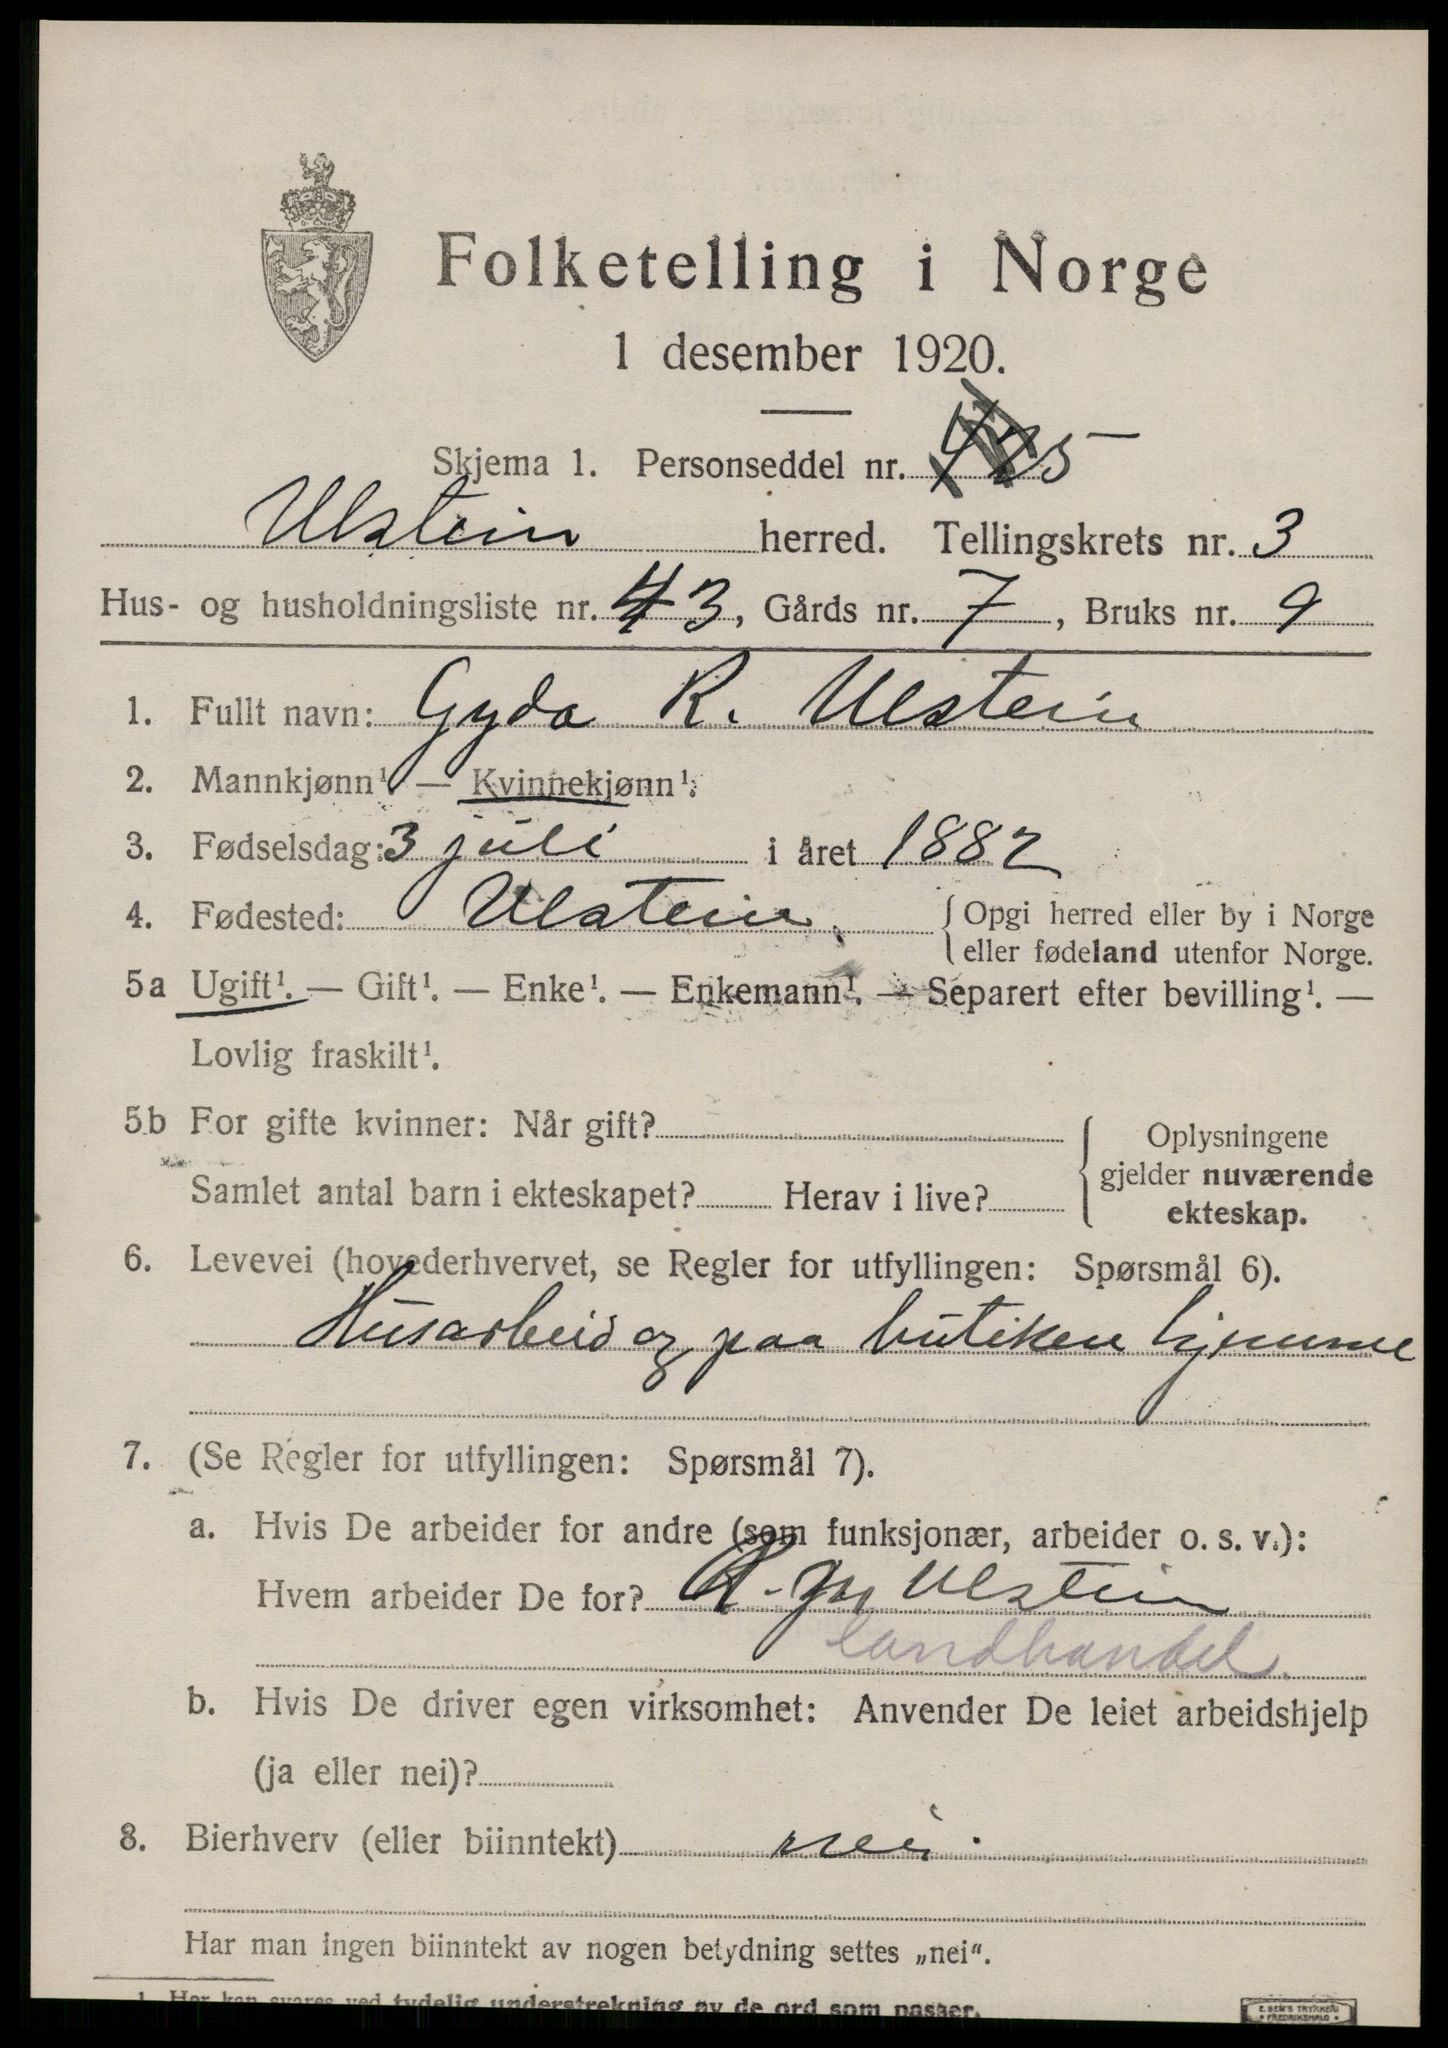 Folketelling i Norge
1 desember 1920.
Skjema 1. Personseddel nr. 5
Ulstein herred. Tellingskrets nr. 3
Hus- og husholdningsliste nr. 43, Gårds nr. 7, Bruks nr. 9
1. Fullt navn: Gyda R. Ulstein
2. Mannkjønn¹. — Kvinnekjønn¹.
3. Fødselsdag: 3 juli i året 1882
4. Fødested: Ulstein. Opgi herred eller by i Norge
eller fødeland utenfor Norge.
5a Ugift¹. — Gift¹. — Enke¹. — Enkemann¹. — Separert efter bevilling¹. —
Lovlig fraskilt¹.
5b For gifte kvinner: Når gift? Oplysningene
gjelder nuværende
ekteskap.
Samlet antal barn i ekteskapet? Herav i live?
6. Levevei (hovederhvervet, se Regler for utfyllingen: Spørsmål 6).
Husarbeid og paa butiken hjemme
7. (Se Regler for utfyllingen: Spørsmål 7).
a. Hvis De arbeider for andre (som funksjonær, arbeider o. s. v.):
Hvem arbeider De for? Ulstein
landhandel.
b. Hvis De driver egen virksomhet: Anvender De leiet arbeidshjelp
(ja eller nei)?
8. Bierhverv (eller biinntekt) nei.
Har man ingen biinntekt av nogen betydning settes „nei“.
1. Her kan svares ved tydelig understrekning av de ord som passer.
E. SEM'S TRYKKERI
FREDRIKSHALD